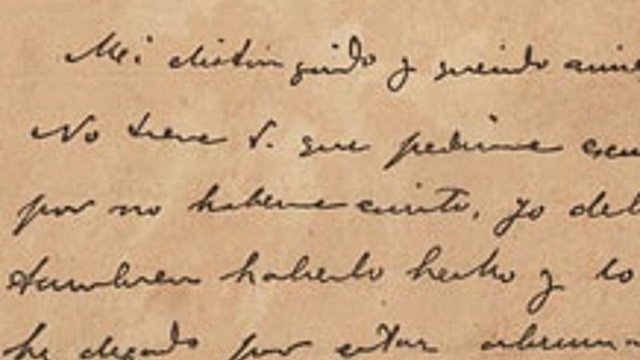 Mi distinguido y querido ami
No tiene V. que pedirme escu
por no haberme escrito, yo deb
tambien haberlo hecho y lo
he dejado por estar abruma